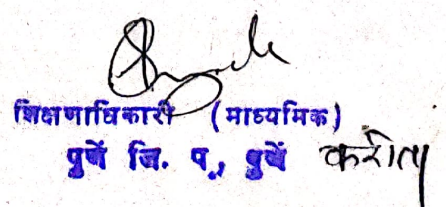 शिक्षणाधिकारी (माध्यमिक)
पुणें जि. प., पुणें करीता